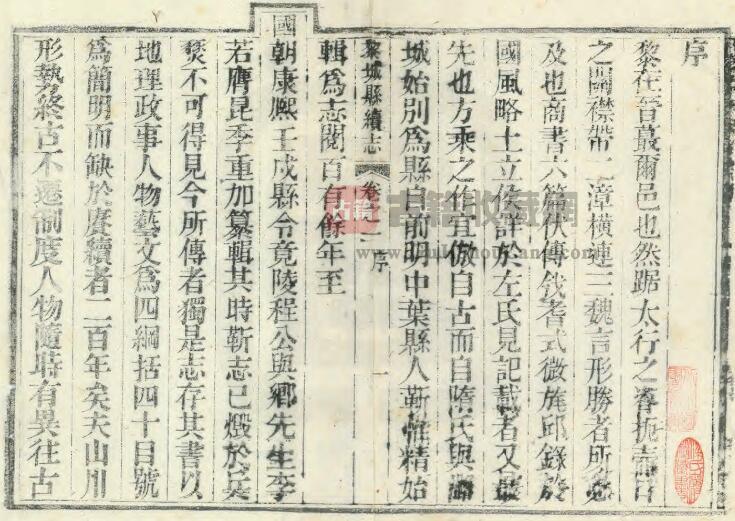 序
黎在晉蕞爾邑也然踞太行之脊扼壺口
之關襟帶二漳橫連三魏言形勝者所必
及也商書六篇伏傳戡耆式微旄邱錄於
國風略土立侯詳於左氏見記載者又最
先也方乘之作宜倣自古而自隋氏與潞
城始別爲縣自前明中葉縣人靳惟精始
黎城縣續志 卷之一 序 一
輯爲志閱百有餘年至
國朝康熙壬戌縣令竟陵程公與鄉先生李
若膺昆季重加纂輯其時靳志已燬於兵
燹不可得見今所傳者獨是志存其書以
地理政事人物藝文爲四綱括四十目號
爲簡明而缺於賡續者二百年矣夫山川
形勢終古不遷制度人物隨時有異往古
古籍